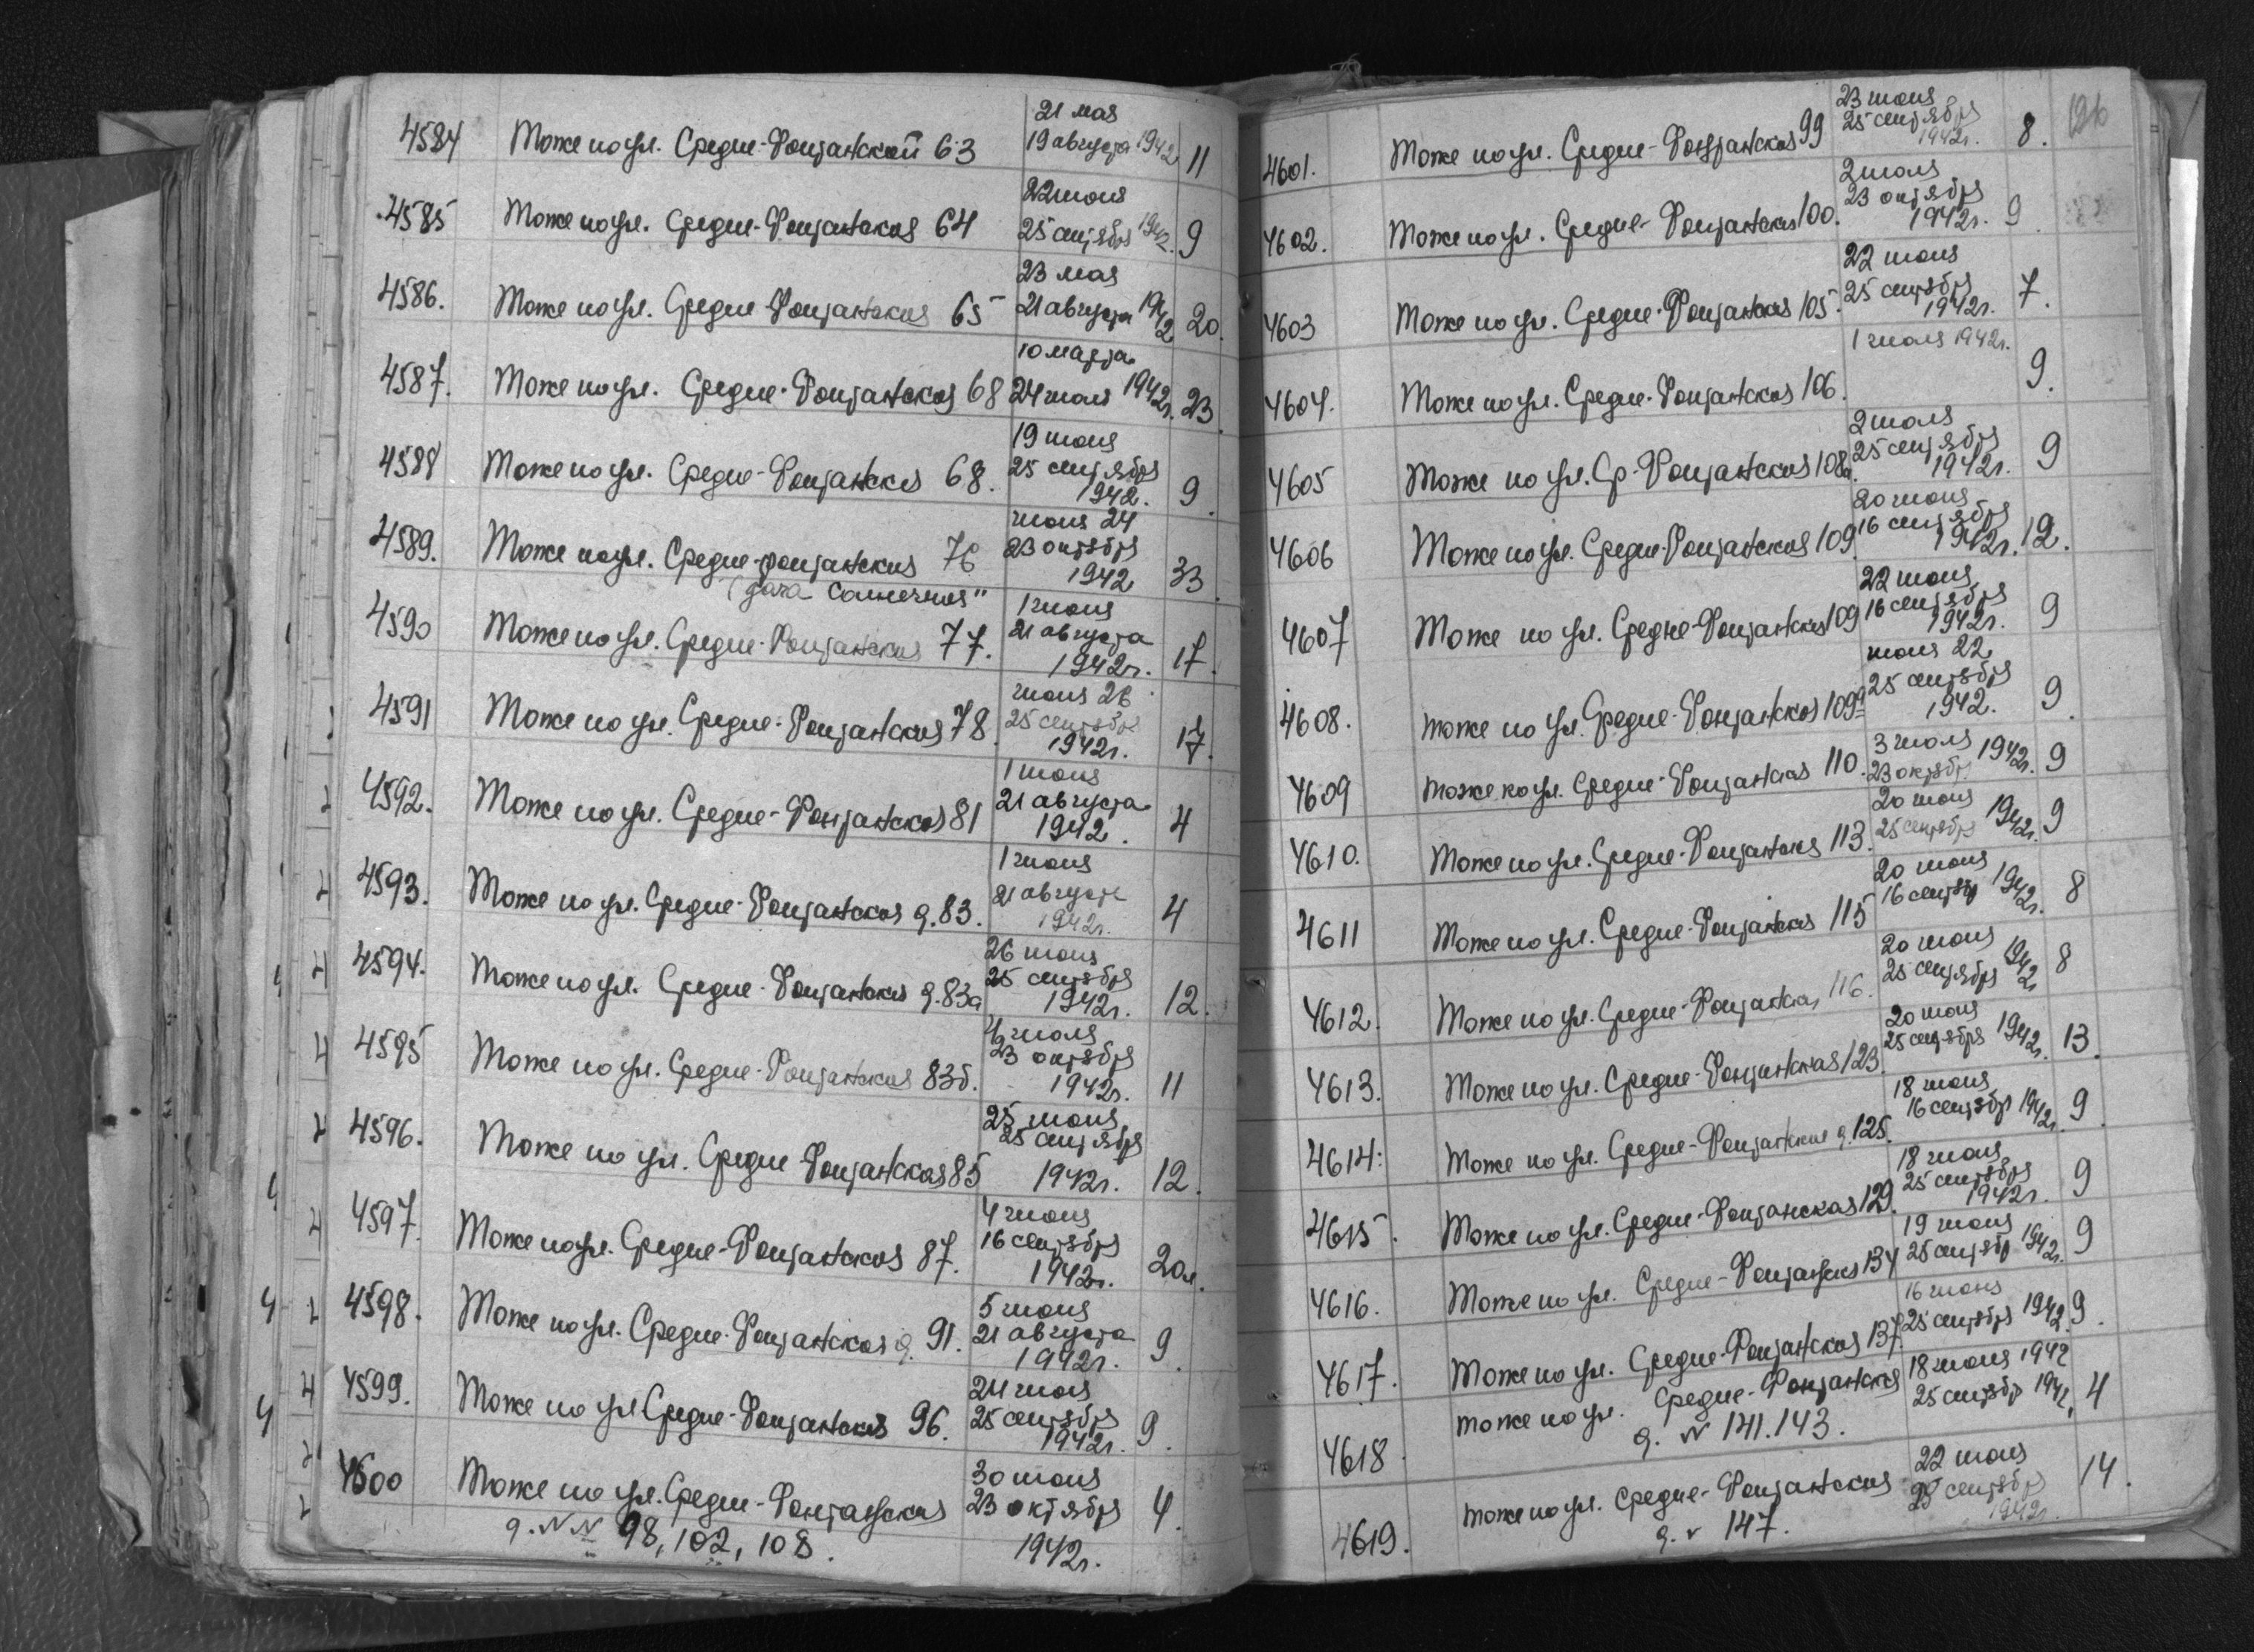 4584 Тоже по ул. Средне-Фонтанской 63 21 мая
19 августа 1942 11
4585 Тоже по ул. Средне-Фонтанская 64 22 июня
25 сентября 1942г. 9
4586. Тоже по ул. Средне-Фонтанская 65 23 мая
21 августа 1942 20.
4587. Тоже по ул. Средне-Фонтанская 68 10 марта
24 июля 1942г. 23
4588 Тоже по ул. Средне-Фонтанская 68. 19 июня
25 сентября
1942. 9.
4589. Тоже по ул. Средне-фонтанская 76 июня 24
(дача Солнечная" 23 октября
1942 33
4590 Тоже по ул. Средне-Фонтанская 77. 1 июня
21 августа
1942г. 17.
4591 Тоже по ул. Средне-Фонтанская 78. июня 26
25 сентября
1942г. 17.
4592. Тоже по ул. Средне-Фонтанская 81 1 июня
21 августа
1942. 4
4593. Тоже по ул. Средне-Фонтанская д. 83. 1 июня
21 августа
1942г. 4
4594. Тоже по ул. Средне-Фонтанская д. 83а 26 июня
25 сентября
1942г. 12.
4595 Тоже по ул. Средне-Фонтанская 83б. июля
23 октября
1942г. 11
4596. Тоже по ул. Средне-Фонтанская 85 25 июня
25 сентября
1942г. 12.
4597. Тоже по ул. Средне-Фонтанская 87. 4 июня
16 сентября
1942г. 20л.
4598. Тоже по ул. Средне-Фонтанская д. 91. 5 июня
21 августа
1942г. 9.
4599. Тоже по ул Средне-Фонтанская 96. 24
25 сентября
1942г. 9.
4600 Тоже по ул. Средне-Фонтанская 30 июня
д. NN 98, 102, 108. 23 октября
1942г. 4.
126
4601. Тоже по ул. Средне-Фонтанская 99 23 июня
25 сентября
1942г. 8.
4602. Тоже по ул. Средне-Фонтанская 100. 2 июля
23 октября
1942г. 9
4603 Тоже по ул. Средне-Фонтанская 105. 22 июня
25 сентября
1942г. 7.
4604. Тоже по ул. Средне-Фонтанская 106. 1 июля 1942г. 9.
4605 Тоже по ул. Ср-Фонтанская 108а. 2 июля
25 сентября
1942г. 9
4606 Тоже по ул. Средне-Фонтанская 109. 20 июня
16 сентября
1942г. 12.
4607 Тоже по ул. Средне-Фонтанская 109 22 июня
16 сентября
1942г. 9
4608. Тоже по ул. Средне-Фонтанская 109а июня 22
25 сентября
1942. 9.
4609 Тоже по ул. Средне-Фонтанская 110. 3 июля
23 октябр 1942г. 9
4610. Тоже по ул. Средне-Фонтанская 113. 20 июня
25 сентября 1942г. 9
4611 Тоже по ул. Средне-Фонтанская 115 20 июня
16 сентябр 1942г. 8
4612. Тоже по ул. Средне-Фонтанская 116. 20 июня
25 сентября 1942г 8
4613. Тоже по ул. Средне-Фонтанская 123. 20 июня
25 сентября 1942г. 13.
4614. Тоже по ул. Средне-Фонтанская д. 125. 18 июня
16 сентябр 1942г. 9.
4615. Тоже по ул. Средне-Фонтанская 129. 18 июня
25 сентября
1942г. 9
4616. Тоже по ул. Средне-Фонтанская 134 19 июня
25 сентябр 1942г. 9
4617. Тоже по ул. Средне-Фонтанская 137. 16 июня
25 сентября 1942. 9.
4618. Тоже по ул. Средне-Фонтанская 18 июня 1942
д. N 141.143. 25 сентябр 1942, 4
4619. Тоже по ул. Средне-Фонтанская 22 июня
д. N 147. сентября
1942г. 14.